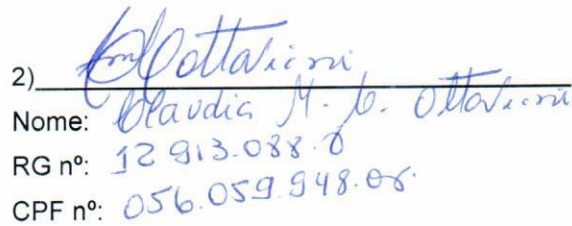 2) Ottaviani
Nome: Claudia M. G. Ottaviani
RG nº: 12 913.088.8
CPF nº: 056.059.948.08.